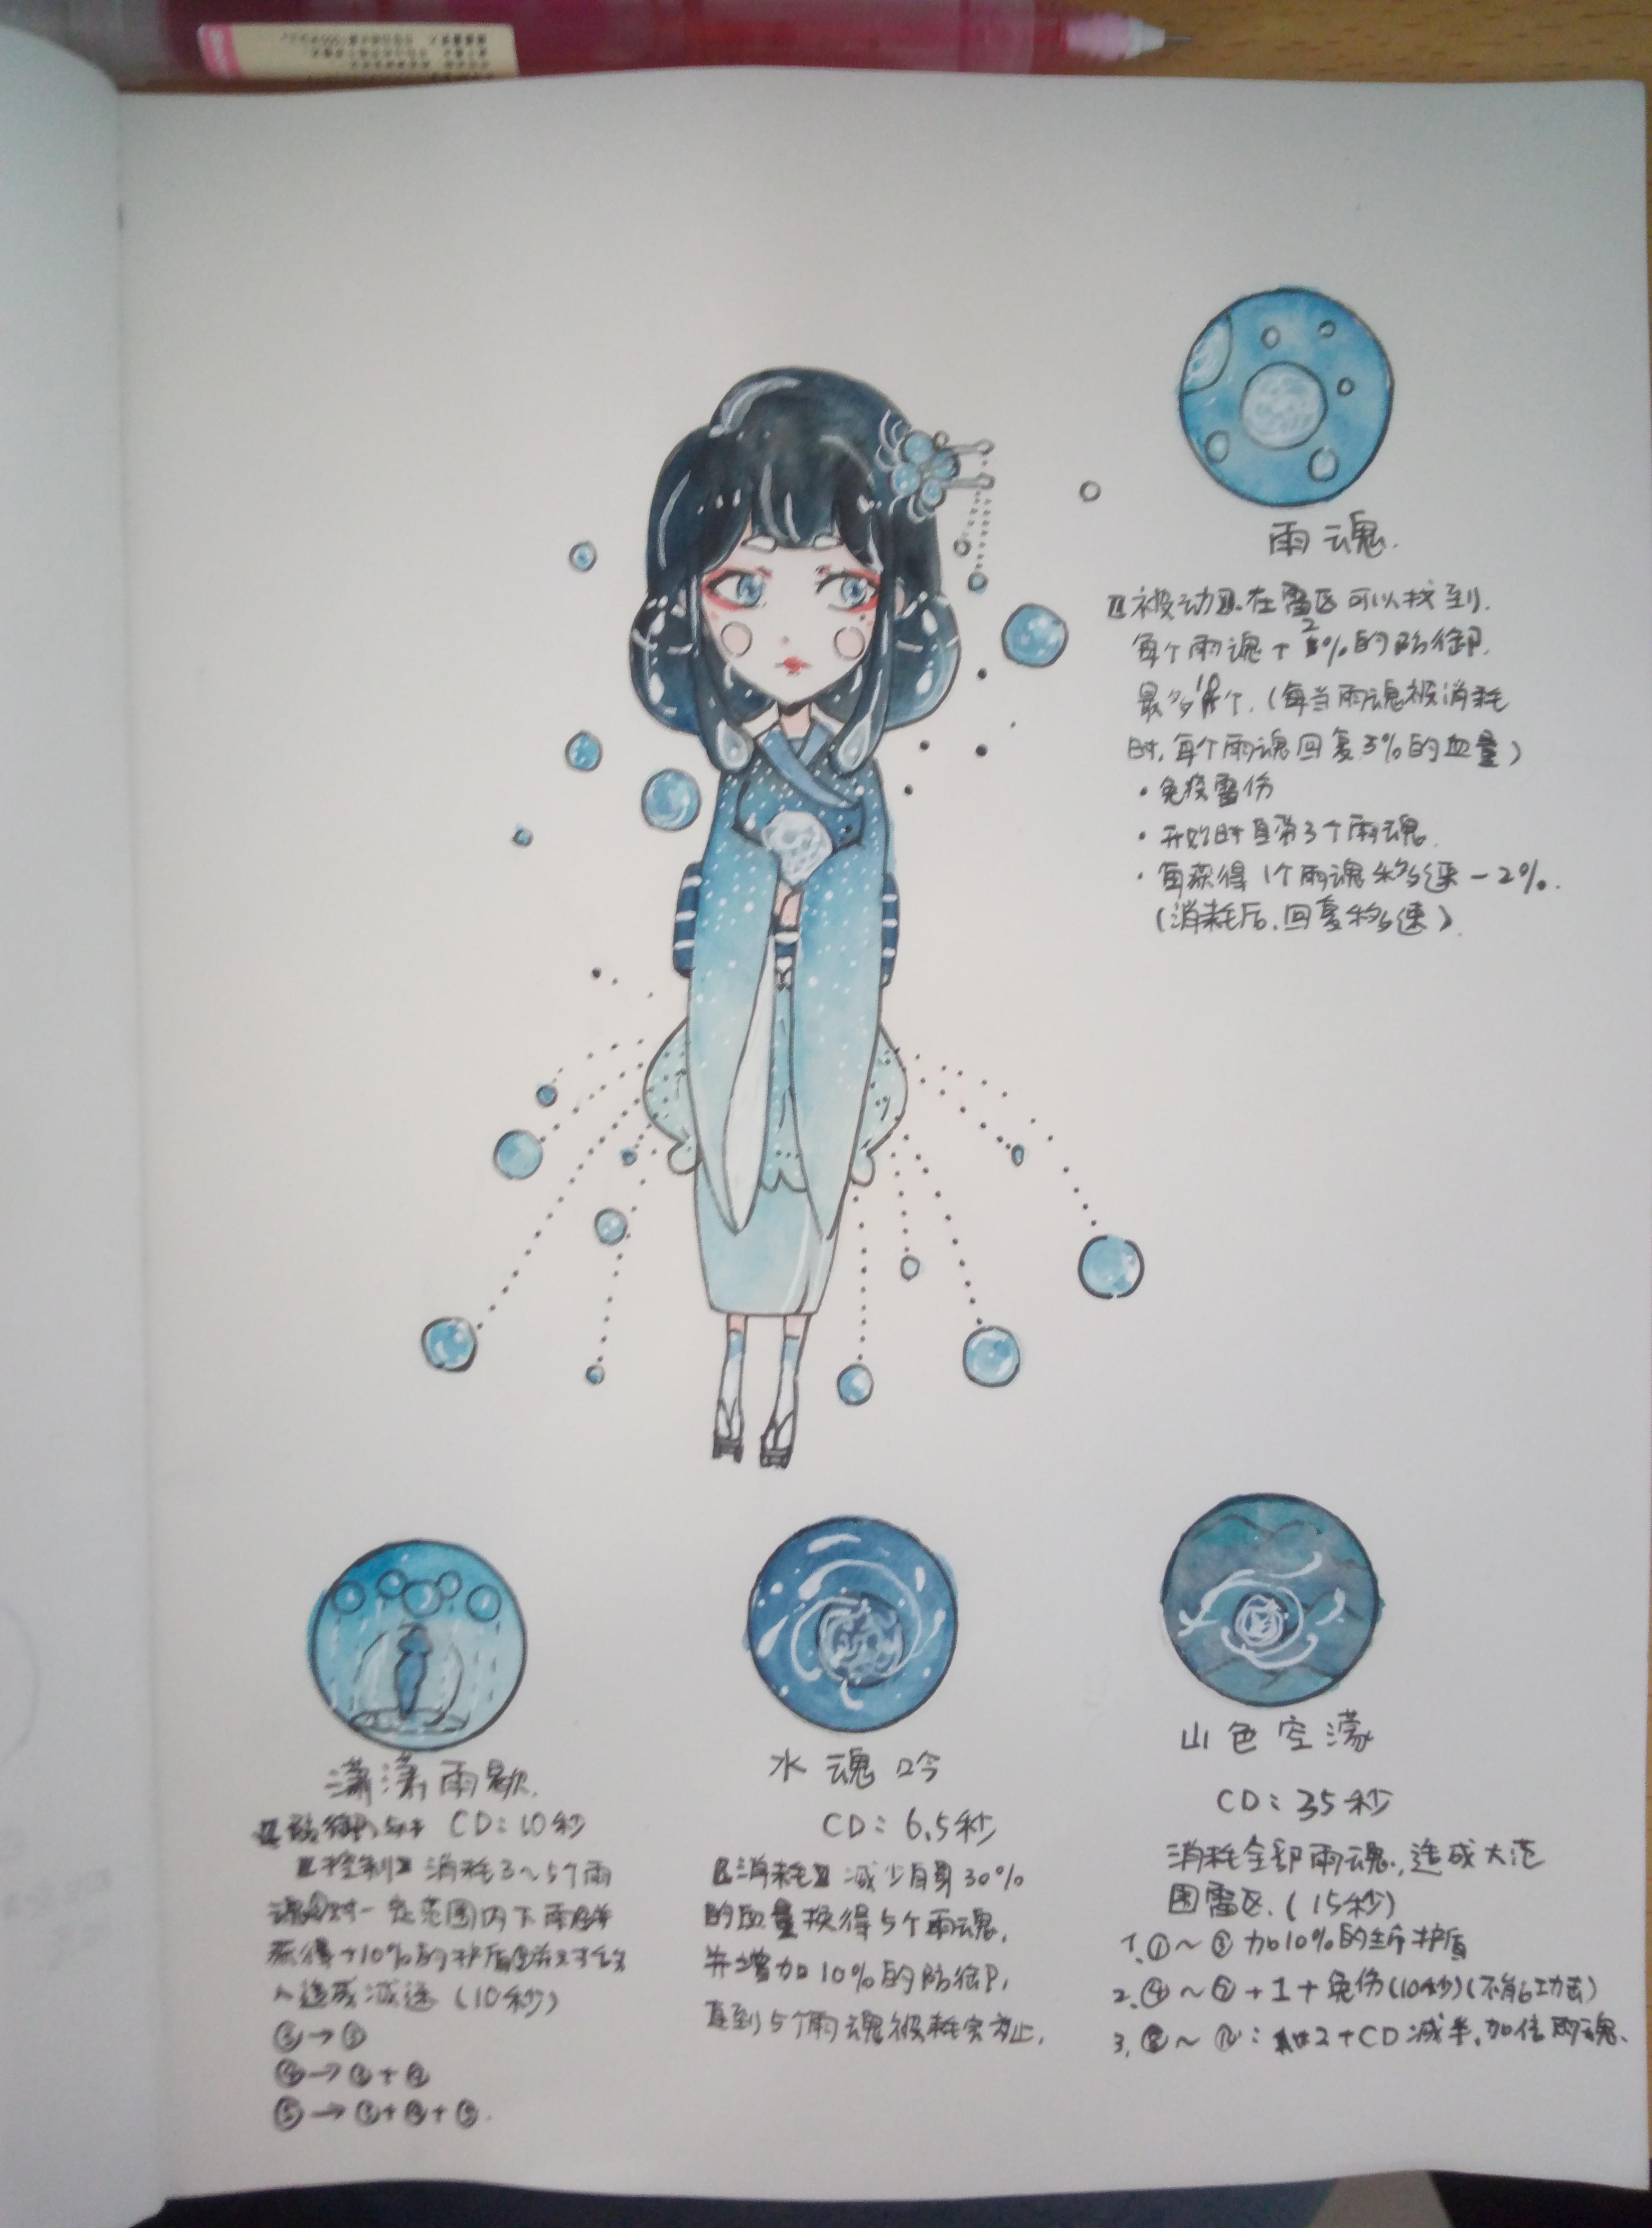 雨魂.
【被动】.在雷区可以找到.
每个雨魂+2%的防御.
最多18个.(每当雨魂被消耗
时,每个雨魂回复5%的血量)
·免疫雷伤
·开始时自带3个雨魂.
·每获得1个雨魂移速-2%.
(消耗后.回复移速).
潇潇雨歇.
CD:10秒
【控制】消耗3~5个雨
对一定范围内下雨
获得+10%的护盾
人造成减速(10秒)
水魂吟
CD:6.5秒
【消耗】减少自身30%
的血量换得5个雨魂,
并增加10%的防御,
直到5个雨魂被耗完为止.
山色空濛
CD:35秒
消耗全部雨魂,造成大范
围雷区.(15秒)
1.①~③加10%的护盾
2.④~⑦+1+免伤(10秒)(不能攻击)
3. CD减半.加倍雨魂.